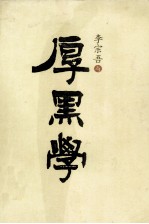 李宗吾
厚黑學